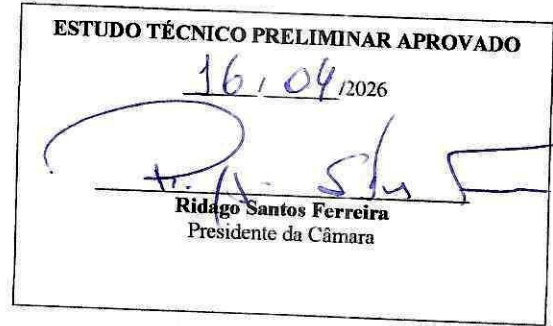 ESTUDO TÉCNICO PRELIMINAR APROVADO
16, 04/2026
Ridago Santos Ferreira
Presidente da Câmara